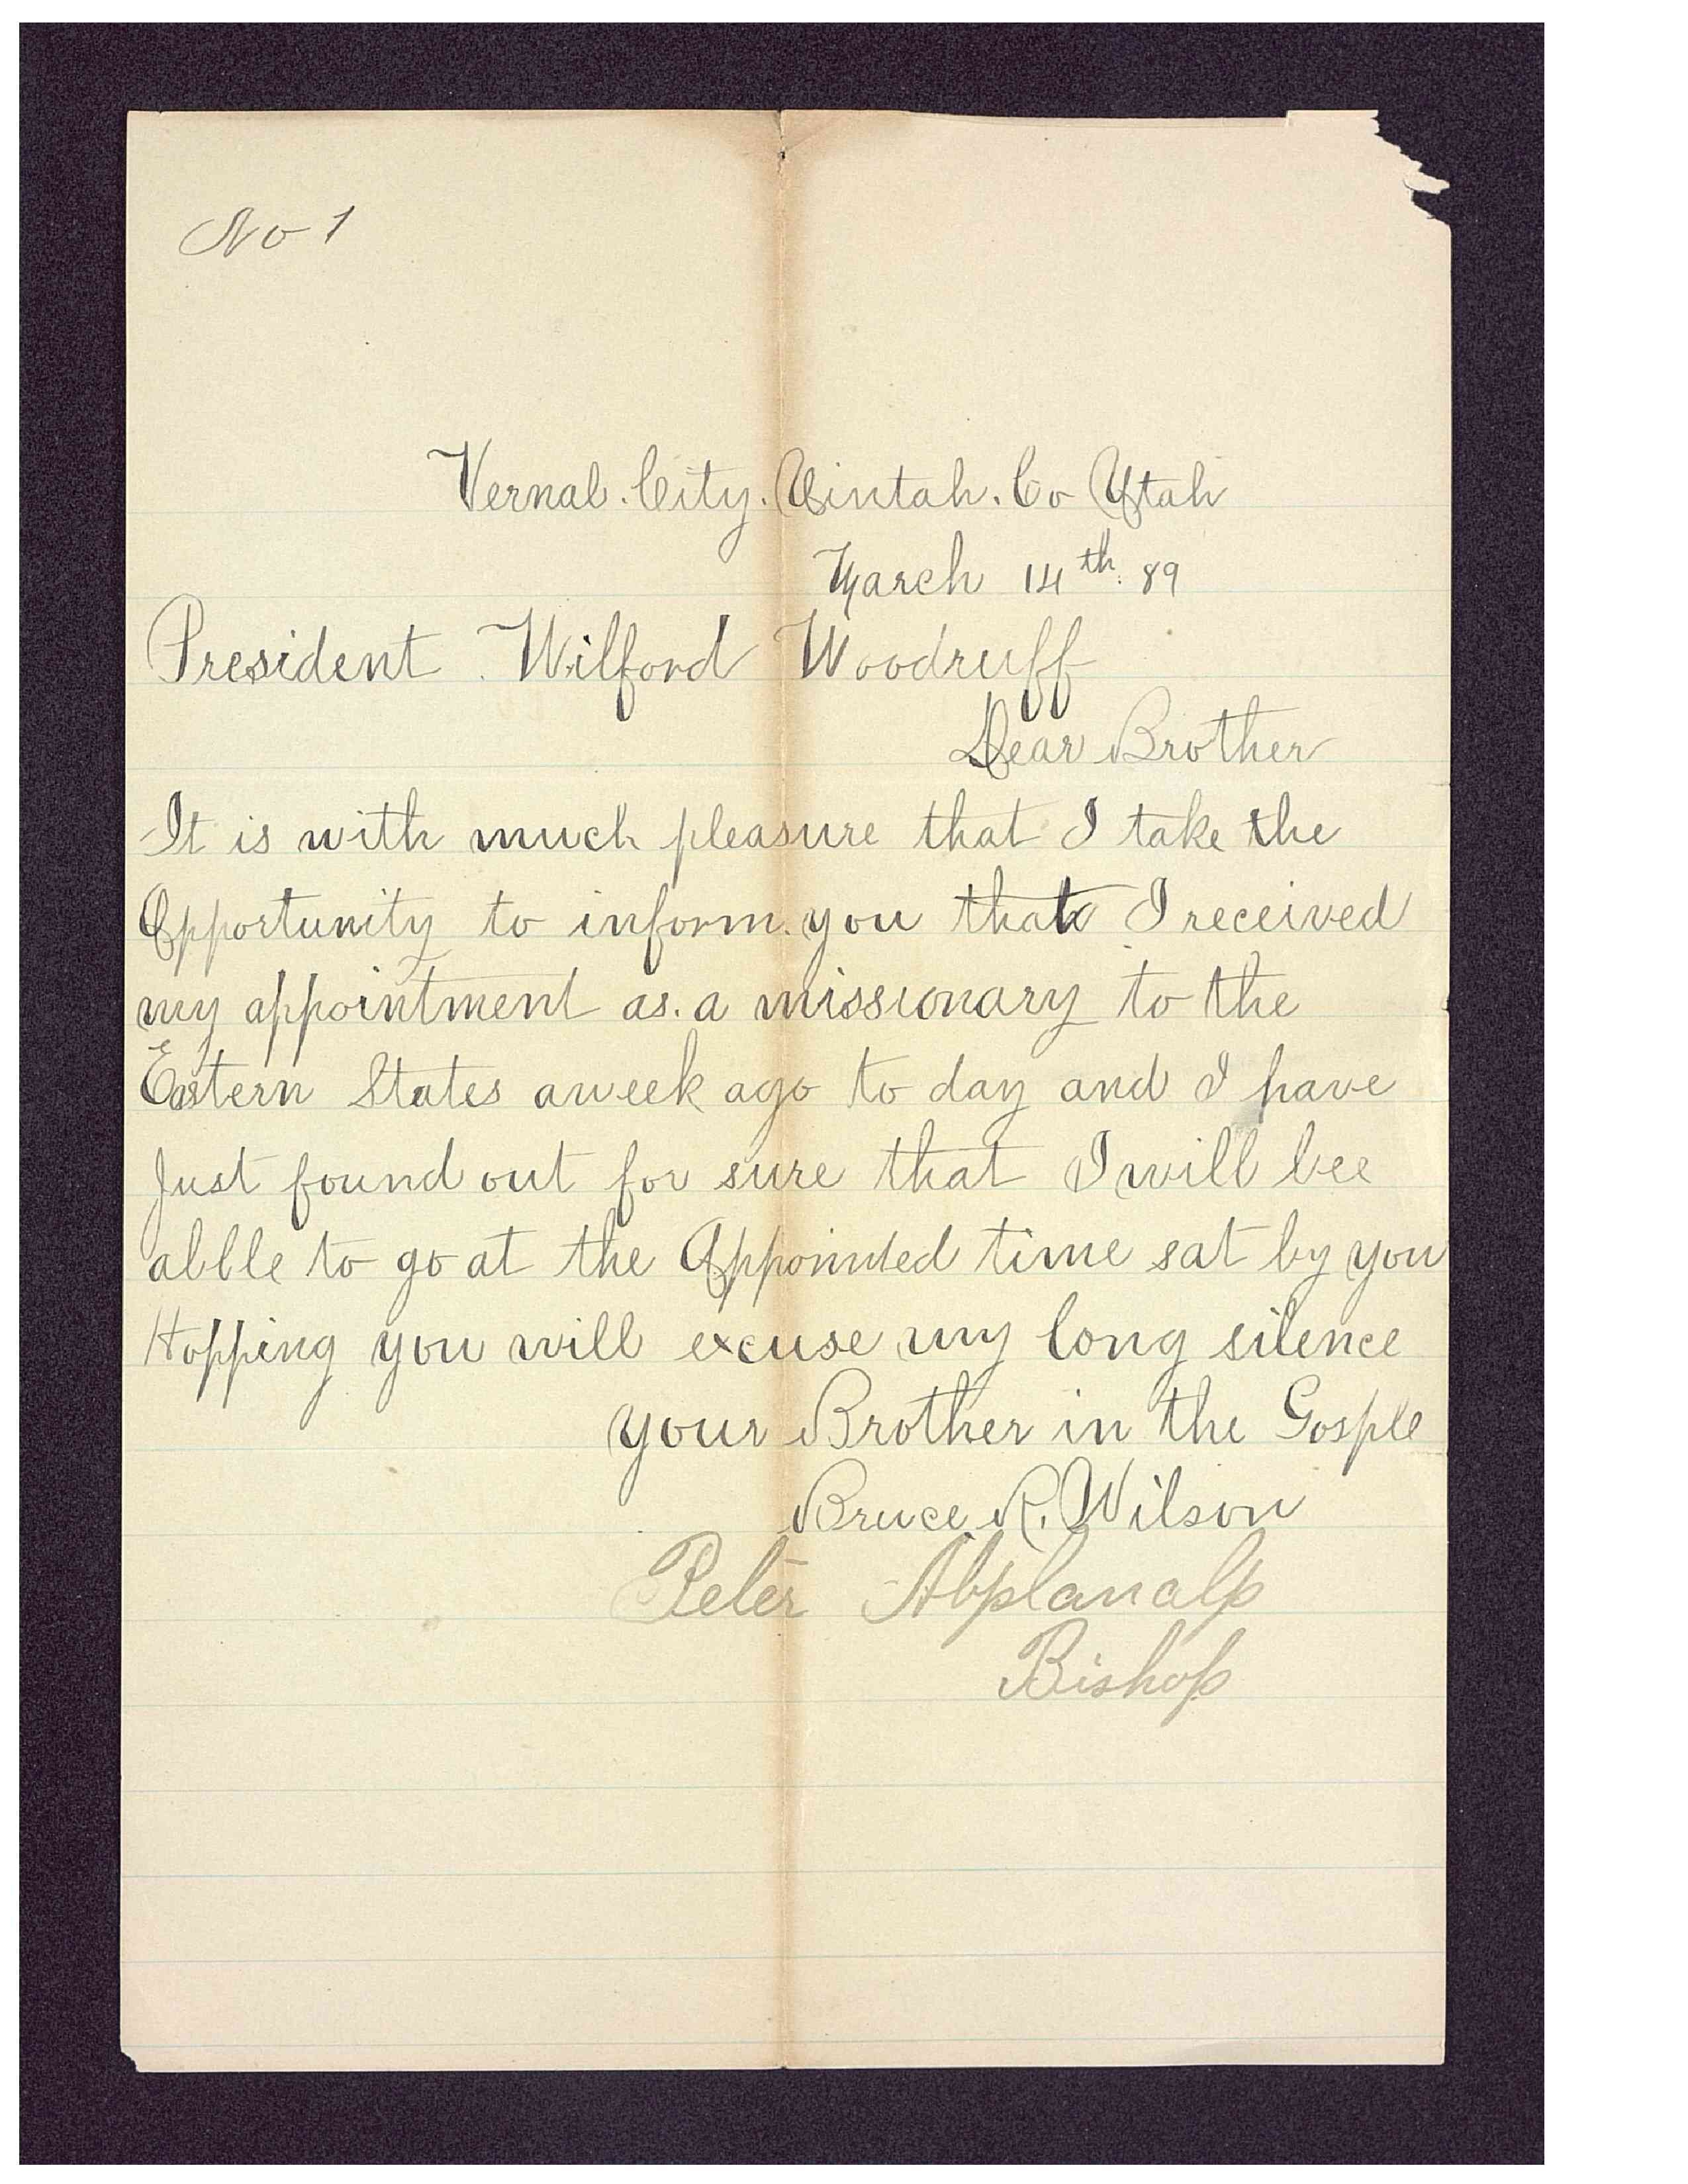 No 1
Vernal. City. Uintah. Co Utah
March 14th. 89
President Wilford Woodruff
Dear Brother
It is with much pleasure that I take the
Opportunity to inform you that I received
my appointment as. a missionary to the
Eastern States aweek ago to day and I have
Just found out for sure that I will bee
ablle to go at the Appointed time sat by you
Hopping you will excuse my long silence
your Brother in the Gosple
Bruce R. Wilson
Peter Abplanalp
Bishop